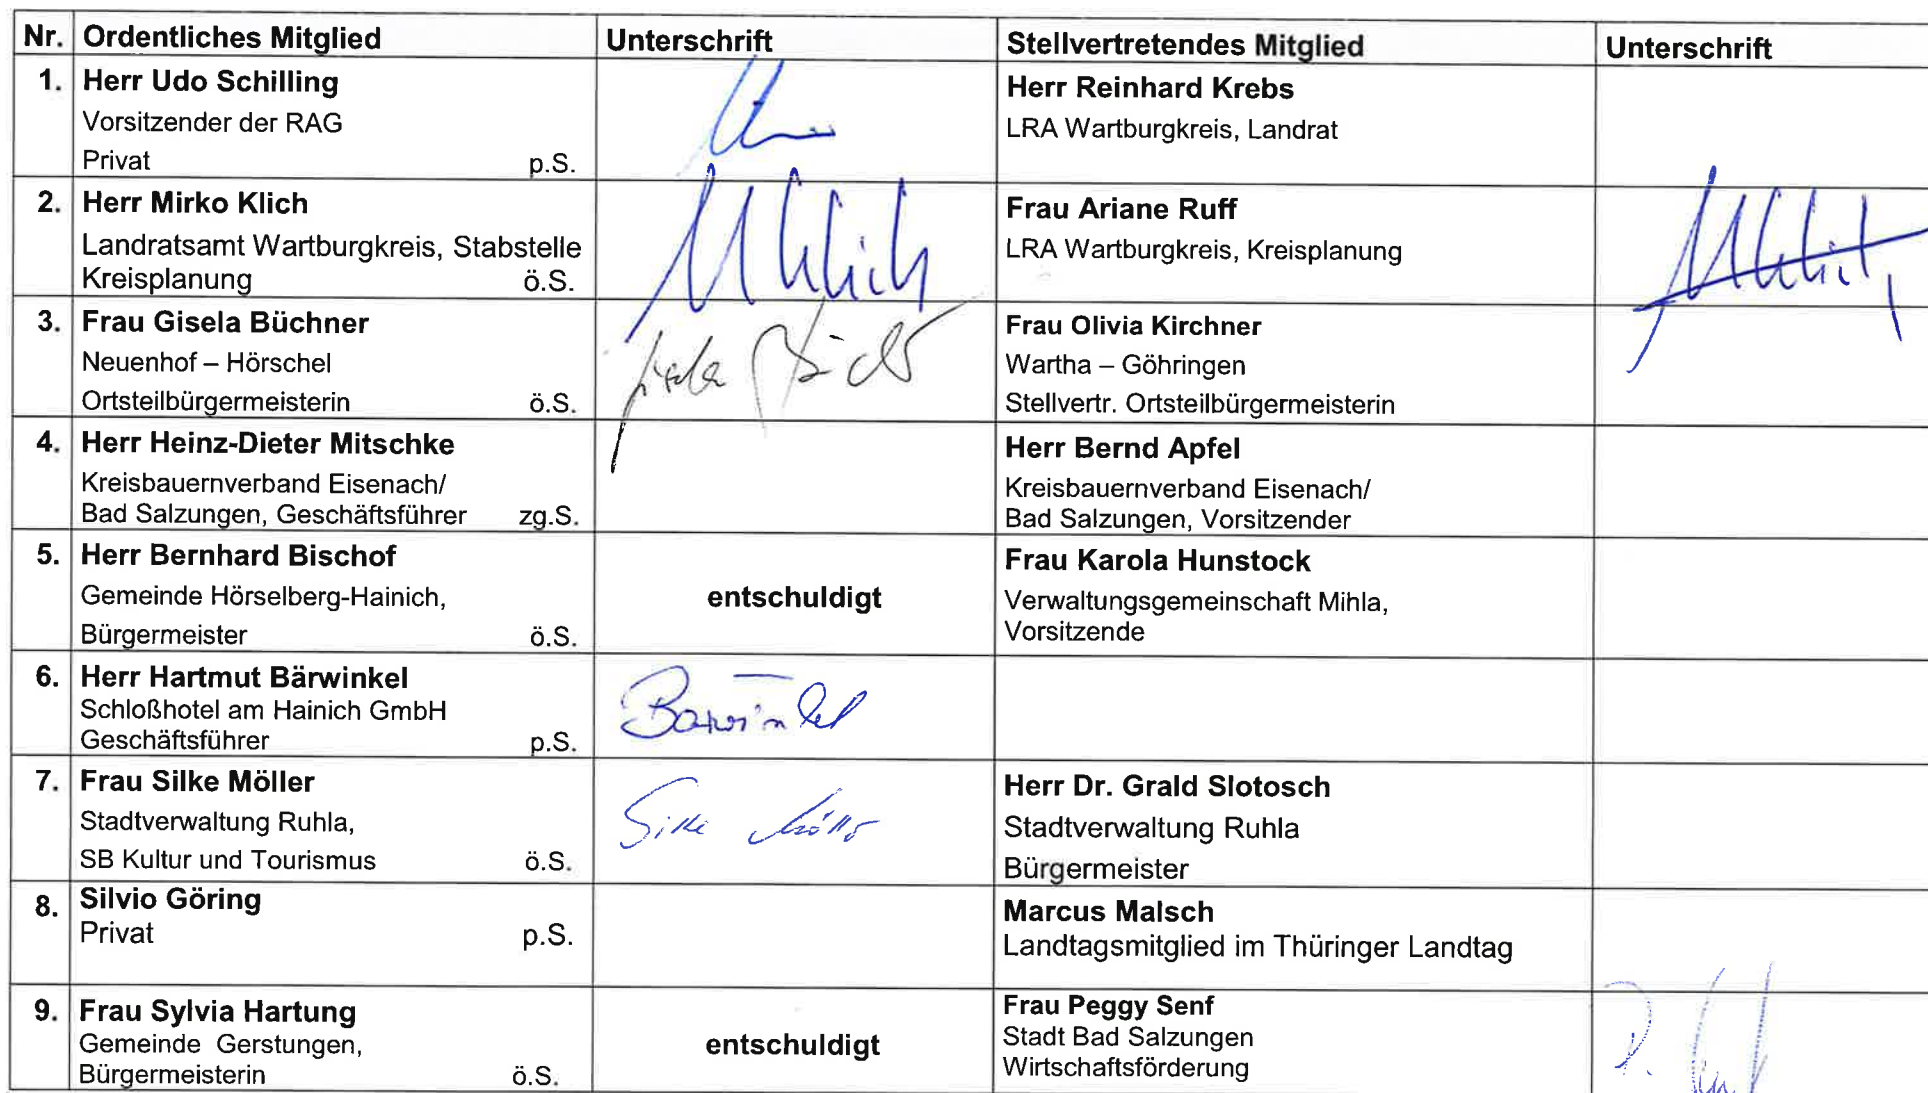 Nr. Ordentliches Mitglied Unterschrift Stellvertretendes Mitglied Unterschrift
1. Herr Udo Schilling
Vorsitzender der RAG
Privat p.S.
Herr Reinhard Krebs
LRA Wartburgkreis, Landrat
2. Herr Mirko Klich
Landratsamt Wartburgkreis, Stabstelle
Kreisplanung ö.S.
MKlich
Frau Ariane Ruff
LRA Wartburgkreis, Kreisplanung
3. Frau Gisela Büchner
Neuenhof – Hörschel
Ortsteilbürgermeisterin ö.S.
Gisela Büchner
Frau Olivia Kirchner
Wartha – Göhringen
Stellvertr. Ortsteilbürgermeisterin
4. Herr Heinz-Dieter Mitschke
Kreisbauernverband Eisenach/
Bad Salzungen, Geschäftsführer zg.S.
Herr Bernd Apfel
Kreisbauernverband Eisenach/
Bad Salzungen, Vorsitzender
5. Herr Bernhard Bischof
Gemeinde Hörselberg-Hainich,
Bürgermeister ö.S.
entschuldigt
Frau Karola Hunstock
Verwaltungsgemeinschaft Mihla,
Vorsitzende
6. Herr Hartmut Bärwinkel
Schloßhotel am Hainich GmbH
Geschäftsführer p.S.
Bärwinkel
7. Frau Silke Möller
Stadtverwaltung Ruhla,
SB Kultur und Tourismus ö.S.
Silke Möller
Herr Dr. Grald Slotosch
Stadtverwaltung Ruhla
Bürgermeister
8. Silvio Göring
Privat p.S.
Marcus Malsch
Landtagsmitglied im Thüringer Landtag
9. Frau Sylvia Hartung
Gemeinde Gerstungen,
Bürgermeisterin ö.S.
entschuldigt
Frau Peggy Senf
Stadt Bad Salzungen
Wirtschaftsförderung